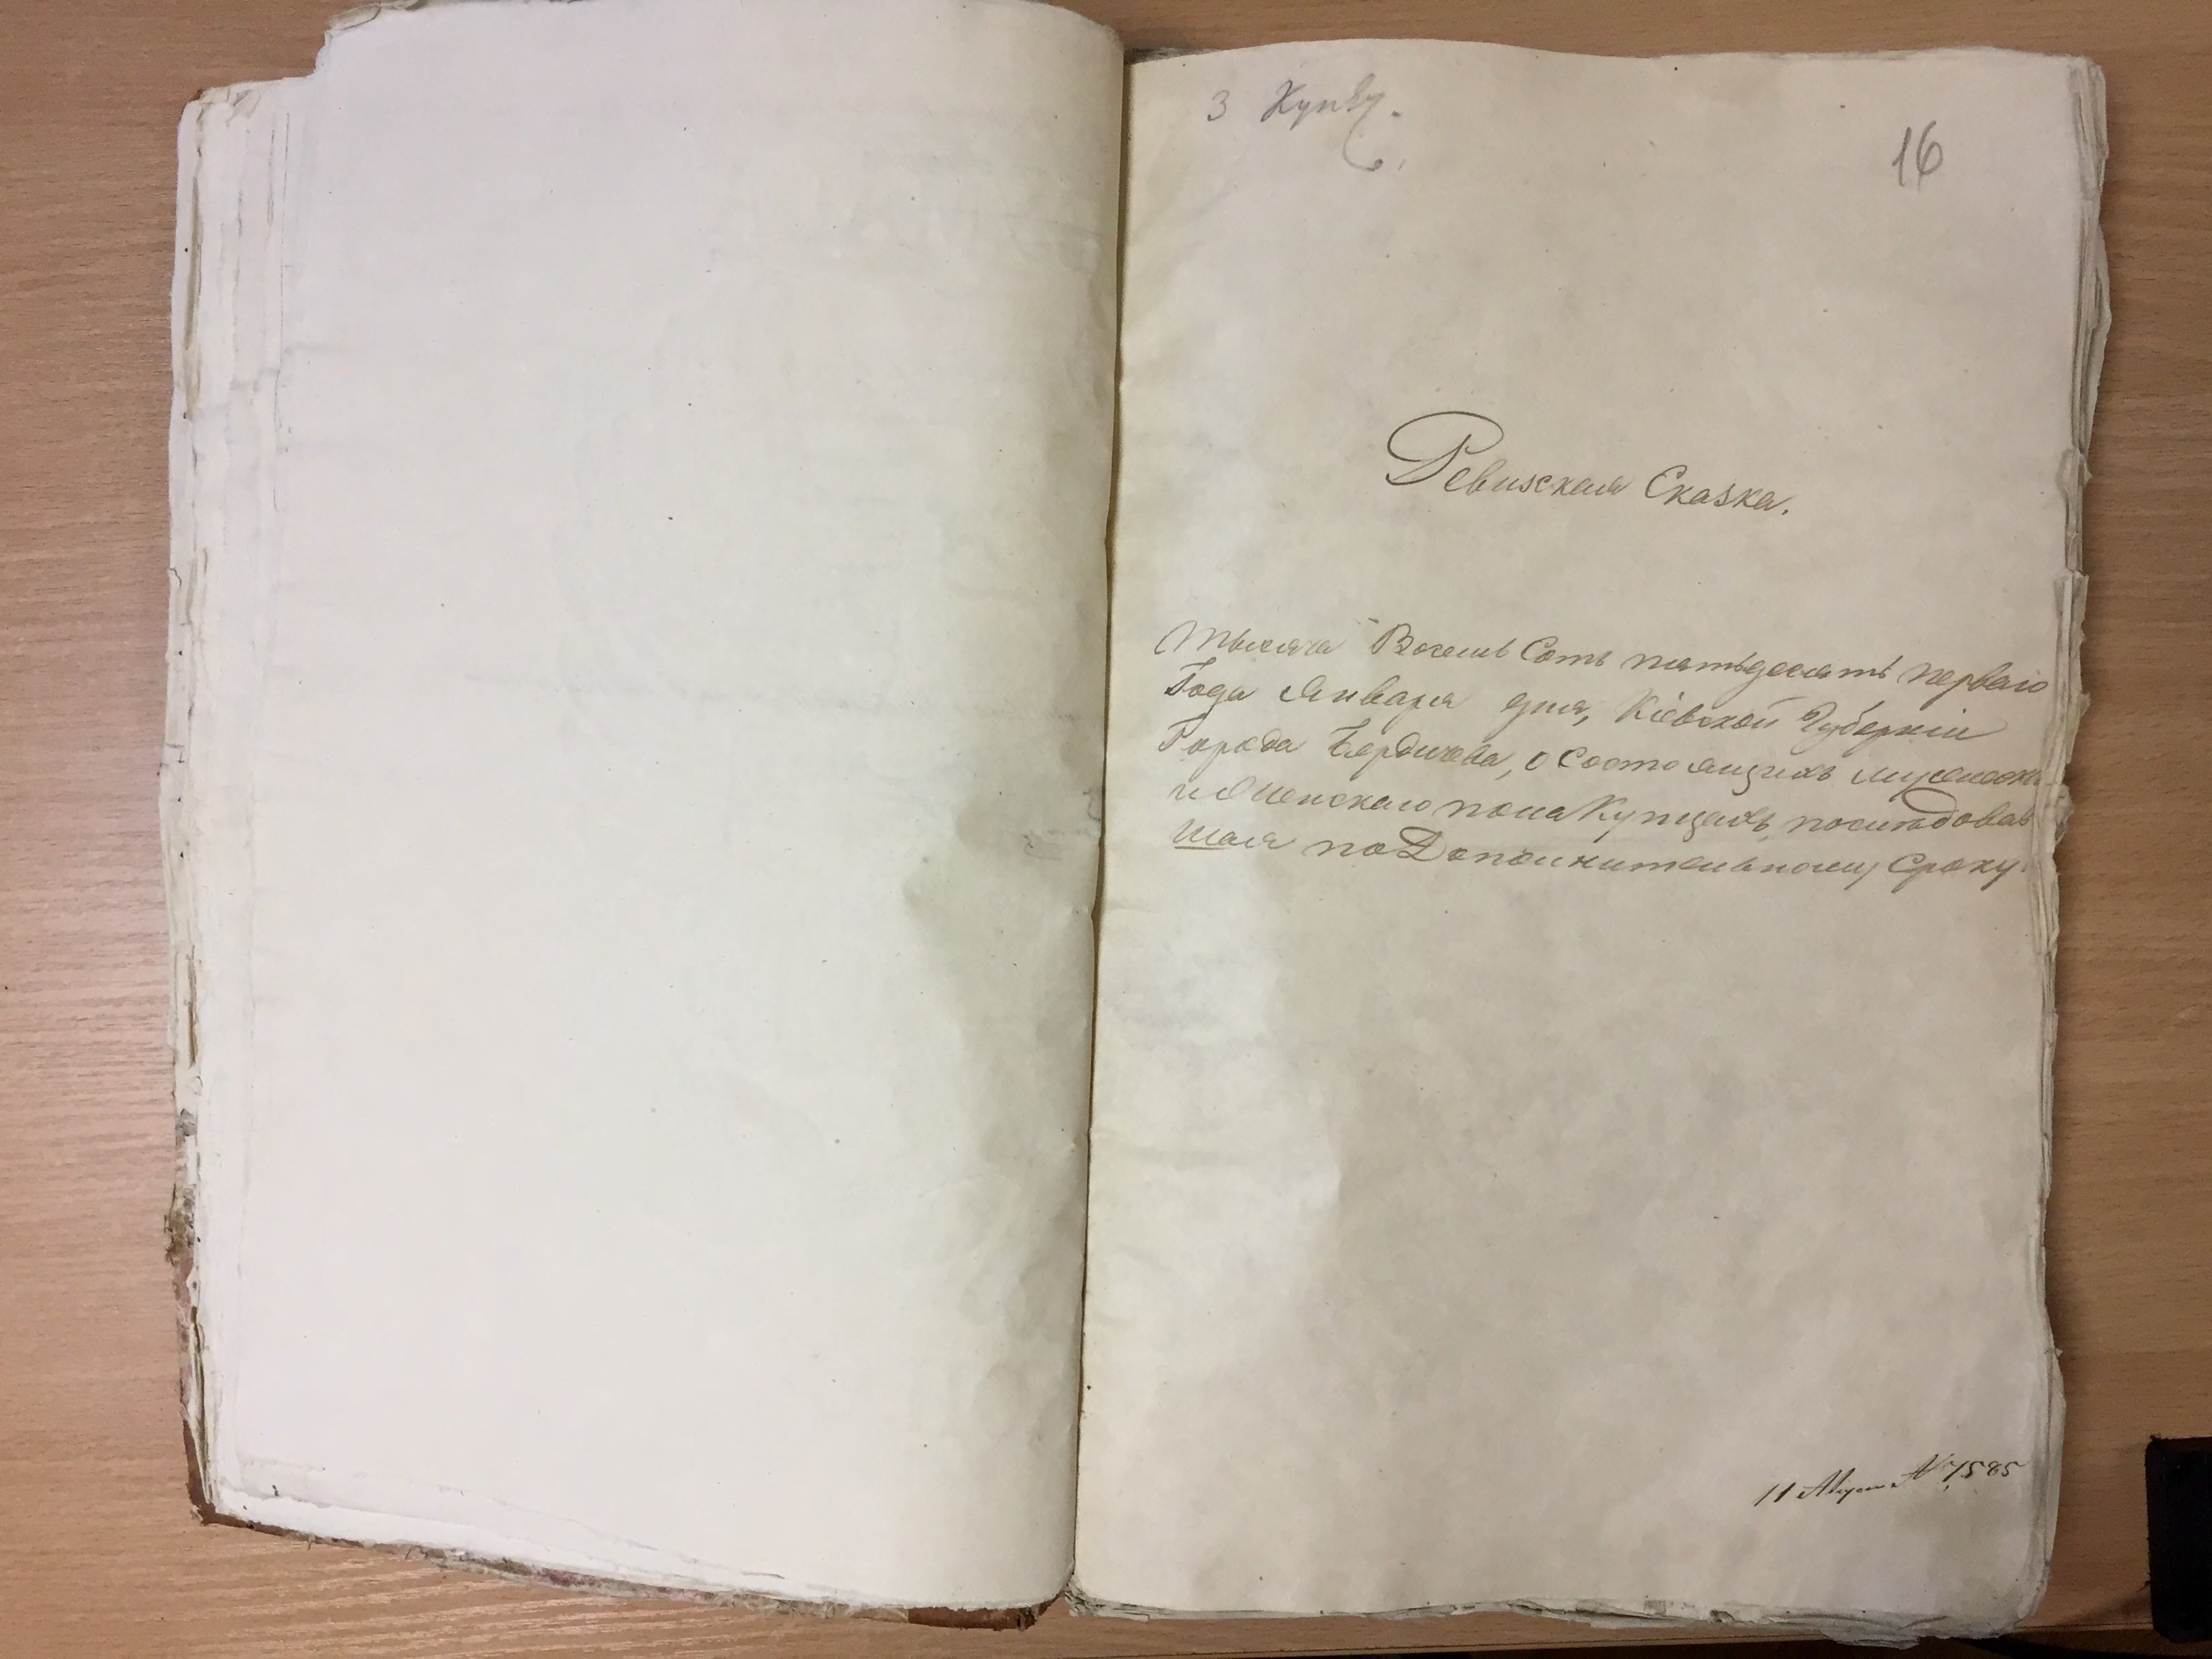 3 Купц.
16
Ревизская Сказка.
Тысяча Восемь Сотъ пятьдесятъ перваго
Года Января дня, Кіевской Губерніи
Города Бердичева, о Состоящихъ мужеска
и Женскаго пола Купцахъ, последовав
шая по Дополнительному Сроку.
11 № 7585